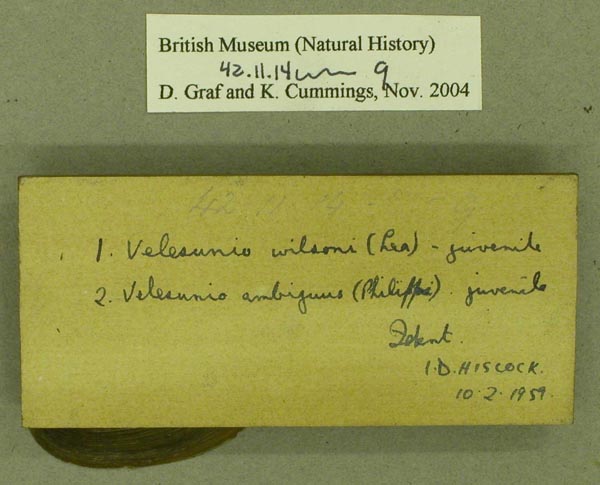 British Museum (Natural History)
42.11.14 9
D. Graf and K. Cummings, Nov. 2004
42 11
1. Velesunio wilsoni (Lea) - juvenile
2. Velesunio ambiguus (Philippi) . juvenile
Ident.
I.D. HISCOCK.
10.2.1959.